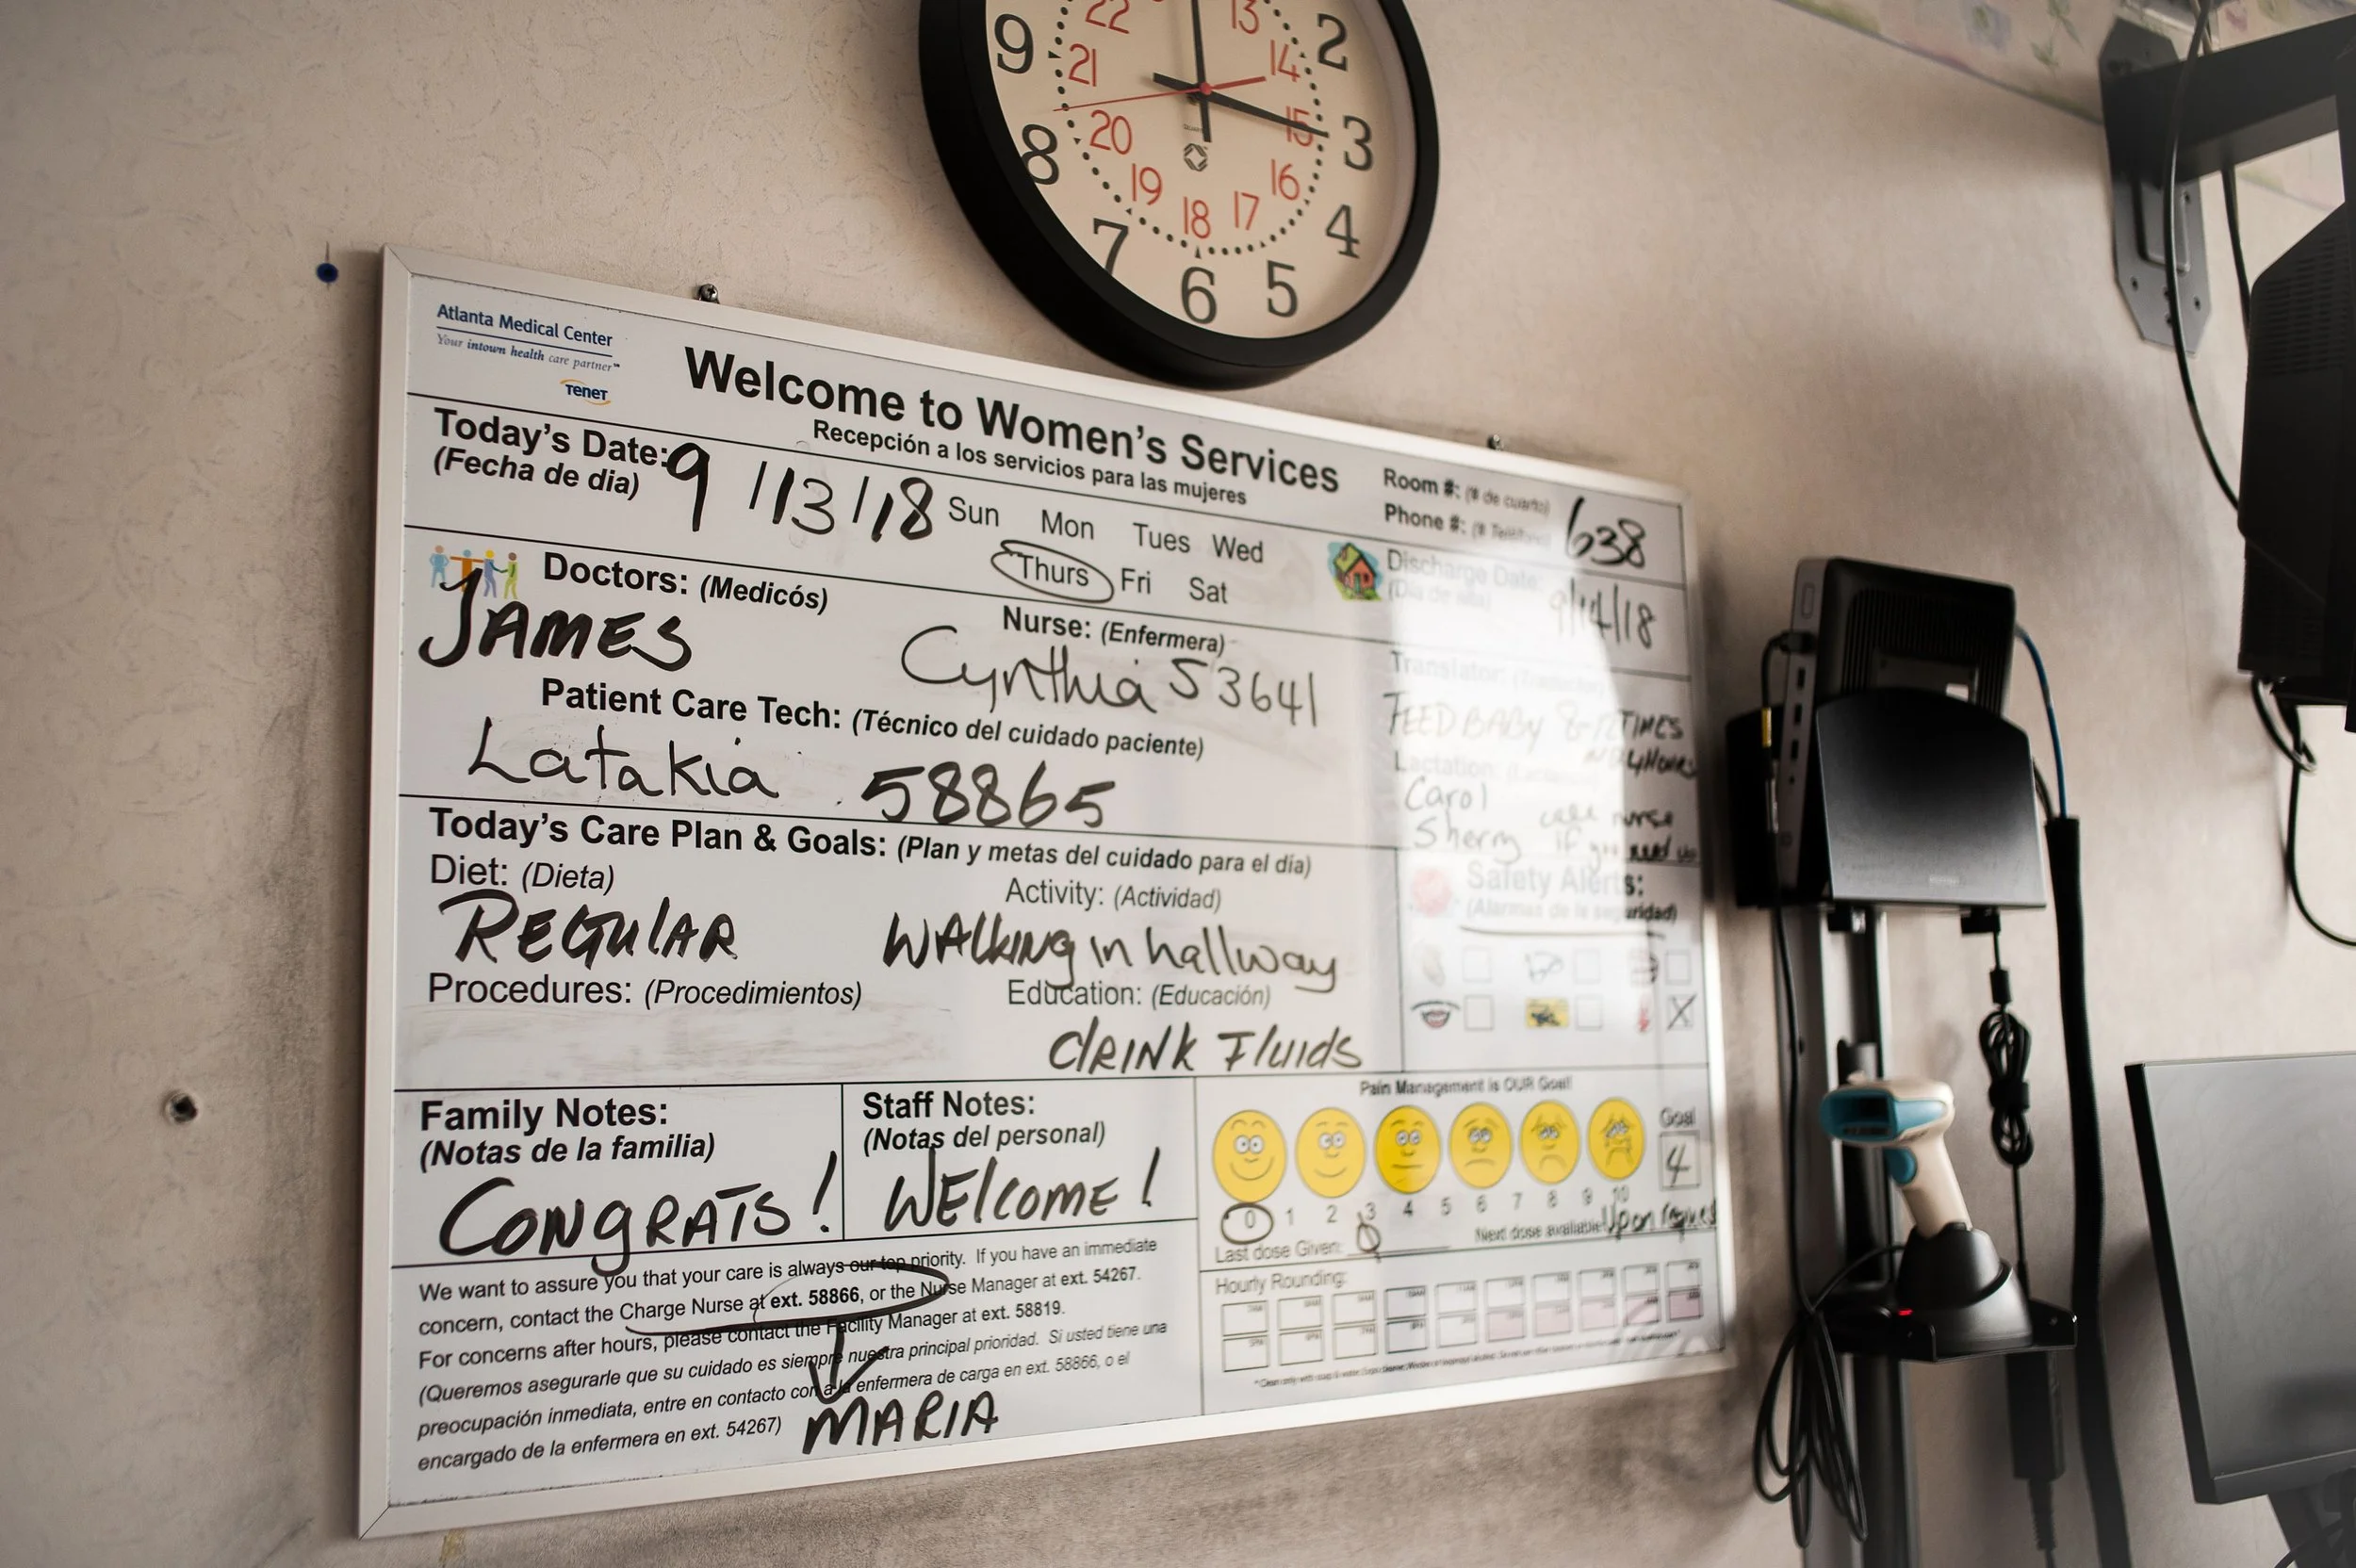 22 13
9 2
21 14
20 15
8 3
19 16
18 17
7 4
6 5
Atlanta Medical Center
Your intown health care partner℠
TENET
Welcome to Women's Services
Recepción a los servicios para las mujeres
Room #: (# de cuarto) 638
Phone #:
Today's Date: 9/13/18
(Fecha de dia)
Sun Mon Tues Wed
Thurs Fri Sat
Discharge Date:
9/14/18
Doctors: (Medicós)
JAMES
Nurse: (Enfermera)
Cynthia 53641
Patient Care Tech: (Técnico del cuidado paciente)
Latakia 58865
Translator:
FEED BABY TIMES
24 HOURS
Lactation:
Carol
Sherry
call nurse
if you need us
Today's Care Plan & Goals: (Plan y metas del cuidado para el día)
Diet: (Dieta)
REGULAR
Activity: (Actividad)
WALKING in hallway
Procedures: (Procedimientos)
Education: (Educación)
DRINK Fluids
Safety Alerts:
(Alarmas de la seguridad)
Family Notes:
(Notas de la familia)
CONGRATS!
Staff Notes:
(Notas del personal)
WElcomE!
Pain Management is OUR Goal!
Goal
4
0 1 2 3 4 5 6 7 8 9 10
Last dose Given: 0
Next dose available: Upon request
Hourly Rounding:
We want to assure you that your care is always our top priority. If you have an immediate
concern, contact the Charge Nurse at ext. 58866, or the Nurse Manager at ext. 54267.
For concerns after hours, please contact the Facility Manager at ext. 58819.
(Queremos asegurarle que su cuidado es siempre nuestra principal prioridad. Si usted tiene una
preocupación inmediata, entre en contacto con a la enfermera de carga en ext. 58866, o el
encargado de la enfermera en ext. 54267)
MARIA